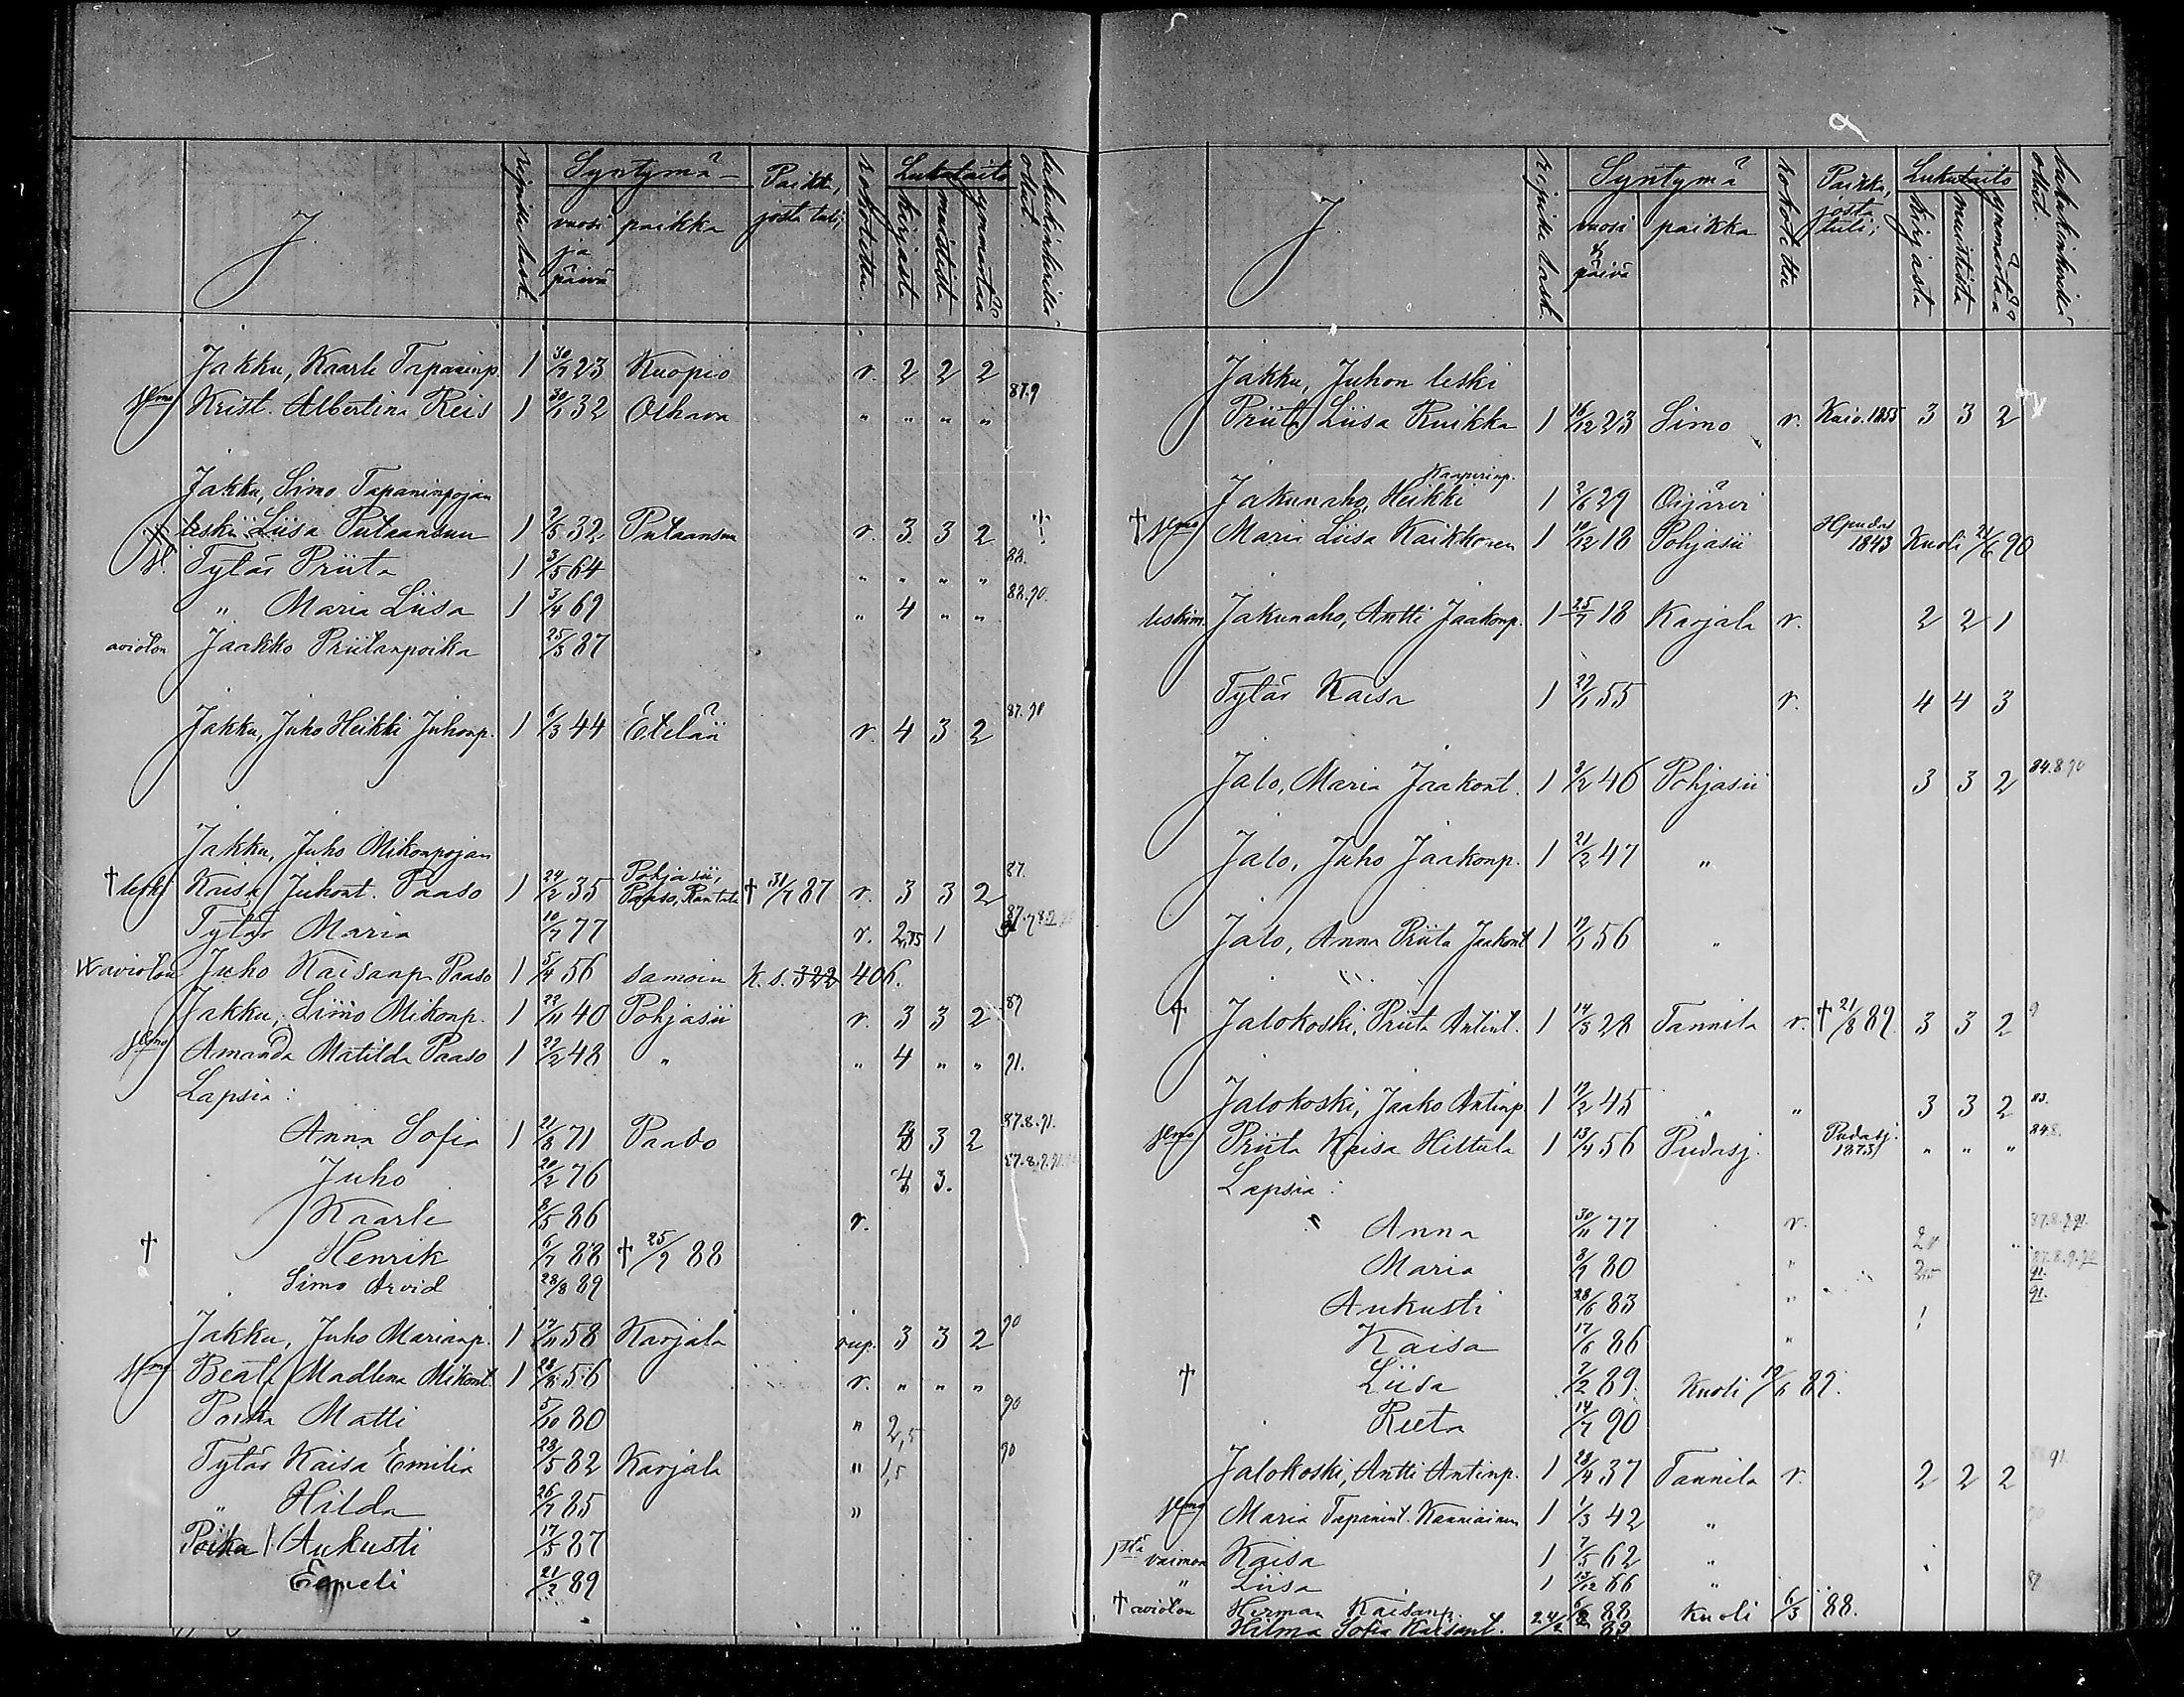 J. Syntymä- Paikka, Lukutaito
vuosi ja päivä paikka josta tuli; rokotettu. kirjasta muistista ymmärtää
Jakku, Kaarle Tapaninp. 1 30/7 23 Kuopio r. 2 2 2
Krist. Albertina Reis 1 30/1 32 Oihava " " " " 87.9
Jakku, Simo Tapaninpojan
leski Liisa Putaansuu 1 2/5 32 Putaansuu r. 3 3 2 †
Tytär Priita 1 3/5 64 " " " " 88.
" Maria Liisa 1 3/4 69 " 4 " " 88.90.
avioton Jaakko Priitanpoika 25/3 87
Jakku, Juho Heikki Juhonp. 1 6/3 44 Eteläii r. 4 3 2 87.90
Jakku, Juho Mikonpojan
† leski Kaisa Juhont. Paaso 1 24/2 35 Pohjasii, Paaso, Rantala † 31/7 87 r. 3 3 2 87.
Tytär Maria 10/7 77 r. 2,75 1
avioton Juho Kaisanp. Paaso 1 5/4 56 samoin K. s. 322 406.
Jakku, Simo Mikonp. 1 22/11 40 Pohjasii r. 3 3 2 89
Amanda Matilda Paaso 1 22/2 48 " " 4 " " 91.
Lapsia:
Anna Sofia 1 21/8 71 Paaso 3 2 87.8.91.
Juho 20/2 76 4 3.
Kaarle 8/5 86 r.
† Henrik 6/7 88 † 25/9 88
Simo Arvid 28/8 89
Jakku, Juho Marianp. 1 17/11 58 Karjala rup. 3 3 2 90
Beata Madlena Mikont. 1 28/8 56 r. " " "
Poika Matti 5/10 80 " 2,5 90
Tytär Kaisa Emilia 23/5 82 Karjala " 1,5 90
" Hilda 26/7 85 "
Poika Aukusti 17/5 87
Eemeli 21/2 89
9
J. Syntymä Paikka, Lukutaito
vuosi & päivä paikka rokotettu josta tuli; kirjasta muistista ymmärtää
Jakku, Juhon leski
Priita Liisa Ruikka 1 16/12 23 Simo r. Kuiv. 1855 3 3 2
Kaapurinp.
Jakunaho, Heikki 1 2/6 29 Oijärvi
† Maria Liisa Kaikkonen 1 10/12 18 Pohjasii Hpudas 1843 Kuoli 21/6 90
leskim. Jakunaho, Antti Jaakonp. 1 25/7 18 Karjala r. 2 2 1
Tytär Kaisa 1 27/1 55 r. 4 4 3
Jalo, Maria Jaakont. 1 2/2 46 Pohjasii 3 3 2 84.8.90
Jalo, Juho Jaakonp. 1 21/2 47 "
Jalo, Anna Priita Jaakont 1 12/1 56 "
† Jalokoski, Priita Antint. 1 14/3 28 Tannila r. † 21/8 89 3 3 2
Jalokoski, Jaako Antinp. 1 12/2 45 " " 3 3 2 83.
Priita Kaisa Hiltula 1 13/4 56 Pudasj. Pudasj. 1875 " " " 84.8.
Lapsia:
Anna 30/11 77 r. 87.8.9.91.
Maria 8/9 80 " 87.8.9.90 91.
Aukusti 28/6 83 " 1 91.
Kaisa 17/6 86 "
† Liisa 2/2 89. Kuoli 19/6 89.
Reeta 14/7 90
Jalokoski, Antti Antinp. 1 23/4 37 Tannila r. 2 2 2 91.
Maria Tapanint. Kanniainen 1 1/3 42 "
1stä vaimon Kaisa 1 7/5 62 "
" Liisa 1 13/12 66 "
† avioton Herman Kaisanp. 88 Kuoli 6/3 88.
Hilma Sofia Kaisant. 24/2 89